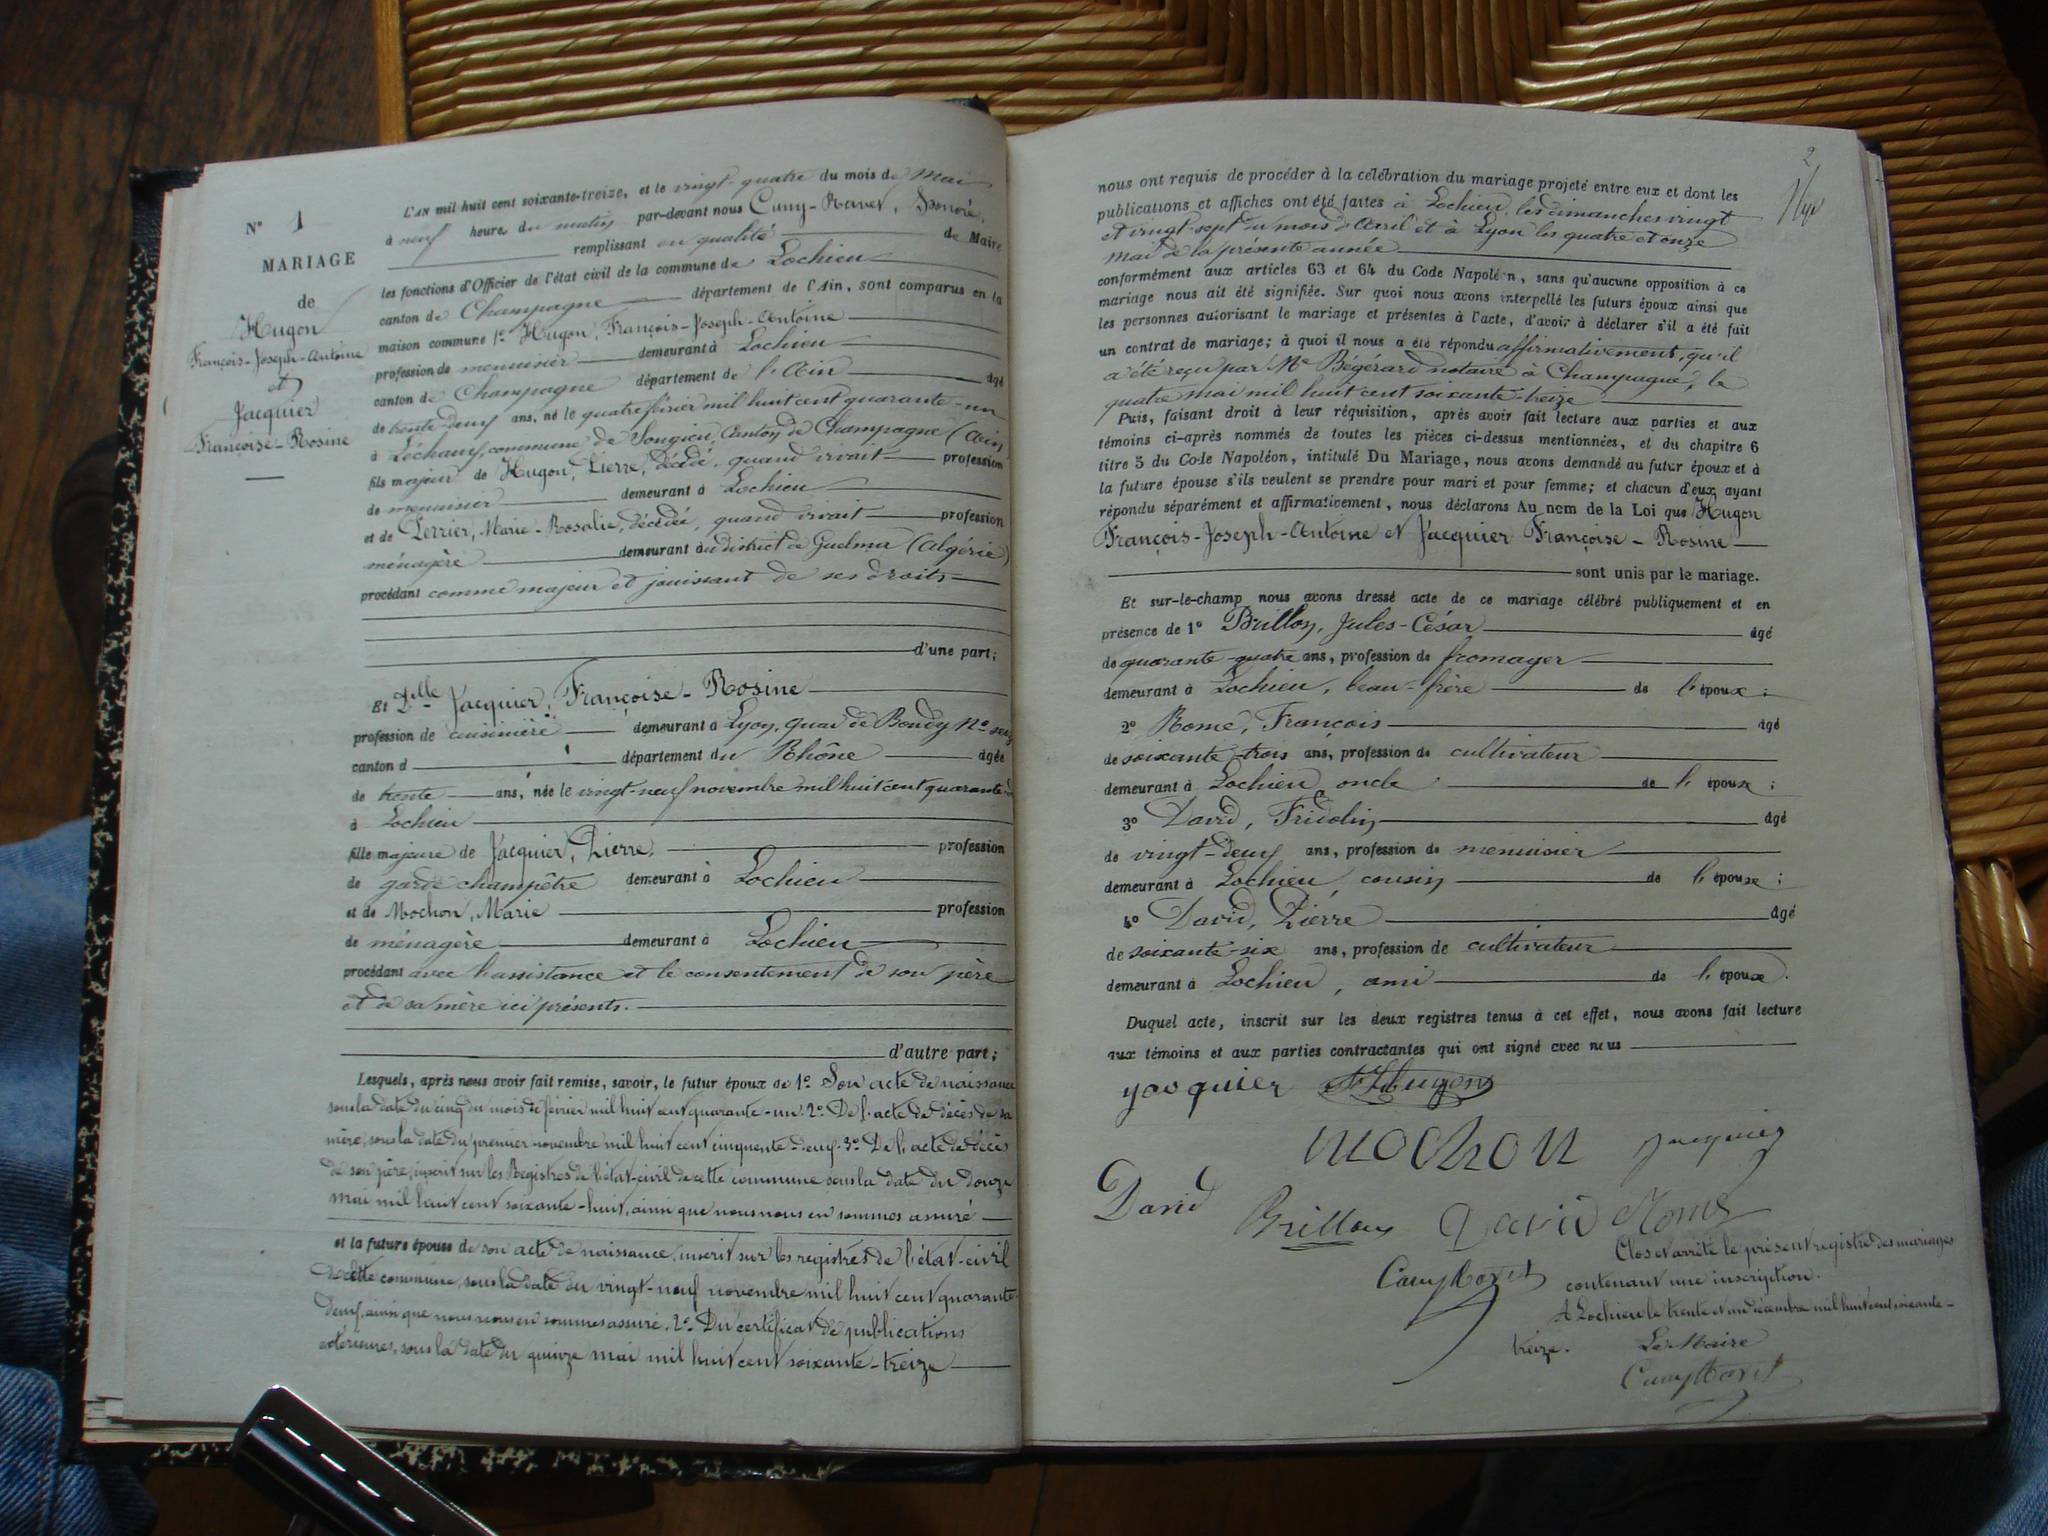 N° 1
MARIAGE
de
Hugon
François-Joseph-Antoine
et
Jacquier
Françoise-Rosine
L'AN mil huit cent soixante-treize, et le vingt-quatre du mois de Mai
à neuf heure du matin par-devant nous Cuny-Ravet, Honoré,
remplissant en qualité de Maire
les fonctions d'Officier de l'état civil de la commune de Lochieu
canton de Champagne département de l'Ain, sont comparus en la
maison commune 1° Hugon, François-Joseph-Antoine
profession de menuisier demeurant à Lochieu
canton de Champagne département de l'Ain âgé
de trente-deux ans, né le quatre février mil huit cent quarante-un
à Léchaux, commune de Songieu, Canton de Champagne (Ain)
fils majeur de Hugon, Pierre, décédé, quand vivait profession
de menuisier demeurant à Lochieu
et de Perrier, Marie-Rosalie, décédée, quand vivait profession
ménagère demeurant au district de Guelma (Algérie)
procédant comme majeur et jouissant de ses droits
d'une part;
Et Dlle Jacquier, Françoise-Rosine
profession de cuisinière demeurant à Lyon, quai de Bondy N°
canton d département du Rhône âgée
de trente ans, née le vingt-neuf novembre mil huit cent quarante
à Lochieu
fille majeure de Jacquier, Pierre, profession
de garde champêtre demeurant à Lochieu
et de Mochon, Marie profession
de ménagère demeurant à Lochieu
procédant avec l'assistance et le consentement de son père
et de sa mère ici présents.
d'autre part;
Lesquels, après nous avoir fait remise, savoir, le futur époux de 1° Son acte de naissance
sous la date du cinq du mois de février mil huit cent quarante-un. 2° De l'acte de décès de sa
mère, sous la date du premier novembre mil huit cent cinquante-deux. 3° De l'acte de décès
de son père, inscrit sur les Registres de l'état-civil de cette commune sous la date du douze
mai mil huit cent soixante-huit, ainsi que nous nous en sommes assuré
et la future épouse de son acte de naissance, inscrit sur les registres de l'état-civil
de cette commune, sous la date du vingt-neuf novembre mil huit cent quarante-
deux, ainsi que nous nous en sommes assuré. 2° Du certificat de publications
extérieures, sous la date du quinze mai mil huit cent soixante-treize
2
nous ont requis de procéder à la célébration du mariage projeté entre eux et dont les
publications et affiches ont été faites à Lochieu, les dimanches vingt
et vingt-sept du mois d'Avril et à Lyon les quatre et onze
mai de la présente année
conformément aux articles 63 et 64 du Code Napoléon, sans qu'aucune opposition à ce
mariage nous ait été signifiée. Sur quoi nous avons interpellé les futurs époux ainsi que
les personnes autorisant le mariage et présentes à l'acte, d'avoir à déclarer s'il a été fait
un contrat de mariage; à quoi il nous a été répondu affirmativement, qu'il
a été reçu par Me Bégérard notaire à Champagne, le
quatre mai mil huit cent soixante-treize
Puis, faisant droit à leur réquisition, après avoir fait lecture aux parties et aux
témoins ci-après nommés de toutes les pièces ci-dessus mentionnées, et du chapitre 6
titre 5 du Code Napoléon, intitulé Du Mariage, nous avons demandé au futur époux et à
la future épouse s'ils veulent se prendre pour mari et pour femme; et chacun d'eux ayant
répondu séparément et affirmativement, nous déclarons Au nom de la Loi que Hugon
François-Joseph-Antoine et Jacquier Françoise-Rosine
sont unis par le mariage.
Et sur-le-champ nous avons dressé acte de ce mariage célébré publiquement et en
présence de 1° Brillon, Jules-César âgé
de quarante-quatre ans, profession de fromager
demeurant à Lochieu, beau-frère de l'époux;
2° Rome, François âgé
de soixante-trois ans, profession de cultivateur
demeurant à Lochieu, oncle de l'épouse;
3° David, Fridolin âgé
de vingt-deux ans, profession de menuisier
demeurant à Lochieu, cousin de l'épouse;
4° David, Pierre âgé
de soixante-six ans, profession de cultivateur
demeurant à Lochieu, ami de l'époux.
Duquel acte, inscrit sur les deux registres tenus à cet effet, nous avons fait lecture
aux témoins et aux parties contractantes qui ont signé avec nous
jacquier Hugon
mochon Jacquier
David Brillon David Rome
Cuny Ravet
Clos et arrêté le présent registre des mariages
contenant une inscription.
A Lochieu le trente et un décembre mil huit cent soixante-
treize. Le Maire
Cuny Ravet